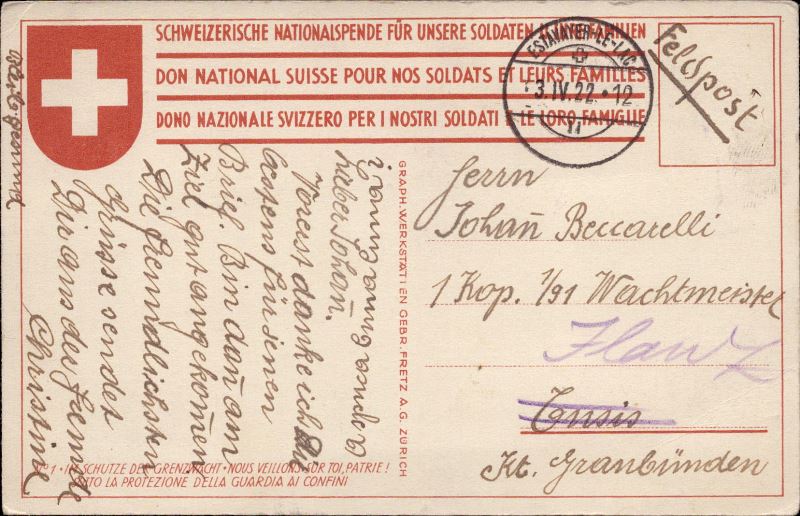 SCHWEIZERISCHE NATIONALSPENDE FÜR UNSERE SOLDATEN FAMILIEN
DON NATIONAL SUISSE POUR NOS SOLDATS ET LEURS FAMILLES
DONO NAZIONALE SVIZZERO PER I NOSTRI SOLDATI E LE LORO FAMIGLIE
ESTAVAYER-LE-LAC
3.IV.22.12
Feldpost
Herrn
Johan̄ Beccarelli
1 Kop. 1/91 Wachtmeister
Ilanz
Tusis
Kt. Graubünden
GRAPH. WERKSTÄTTEN GEBR. FRETZ A.G. ZÜRICH
lieber Johan̄.
Vorerst danke ich Dir
bestens für jenen
Brief. Bin dan̄ am
Ziel gut angekom̄en
Die freundlichsten
Grüsse sendet
Dir aus der Fremde
Christine
No 1 • IM SCHUTZE DER GRENZWACHT • NOUS VEILLONS SUR TOI, PATRIE!
SOTTO LA PROTEZIONE DELLA GUARDIA AI CONFINI